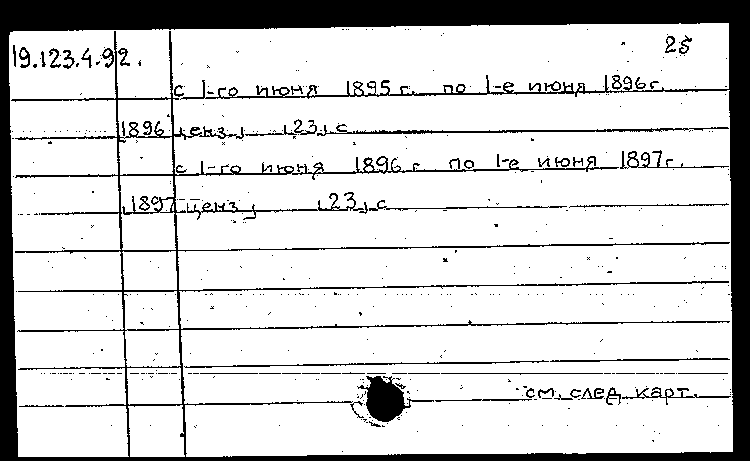 19.123.4.92. 25
с 1-го июня 1895 г. по 1-е июня 1896 г.
[1896 ценз.], [23] с
с 1-го июня 1896 г. по 1-е июня 1897 г.
[1897 ценз.], [23] с
см. след. карт.